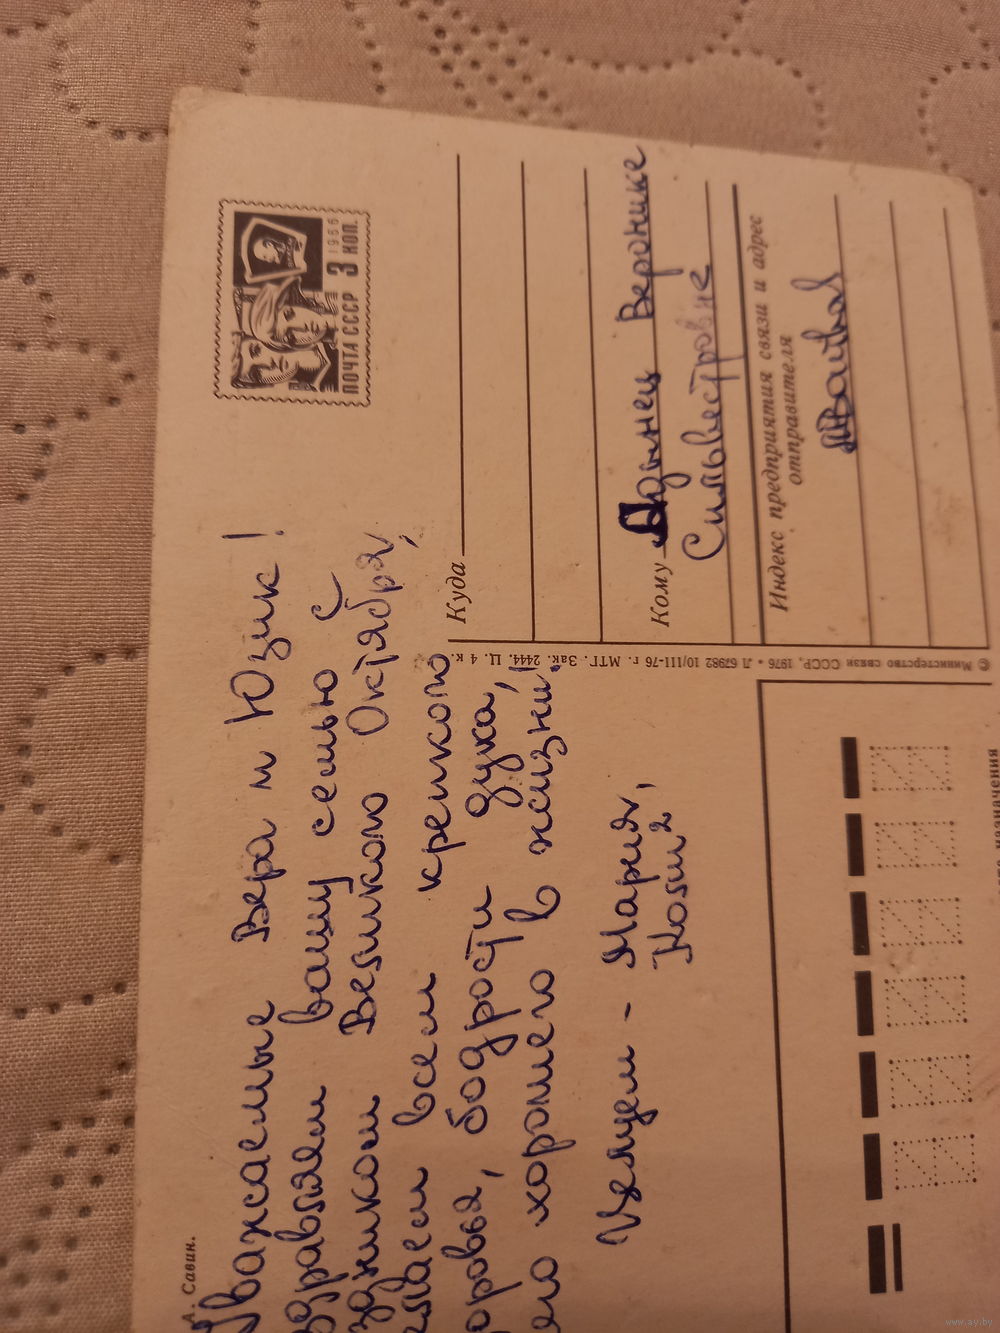 А. Савин.
Уважаемые Вера и Юзик!
здравляем вашу семью с
здником Великого Октября,
елаем всем крепкого
оровья, бодрости духа,
его хорошего в жизни!
Целуем - Мария,
Коля
ПОЧТА СССР 3 КОП.
1966
Куда
Кому Адынец Веронике
Сильвестровне
Индекс предприятия связи и адрес
отправителя
© Министерство связи СССР, 1976 • Л 67982 10/III-76 г. МТГ. Зак. 2444. Ц. 4 к.
назначения
www.ay.by